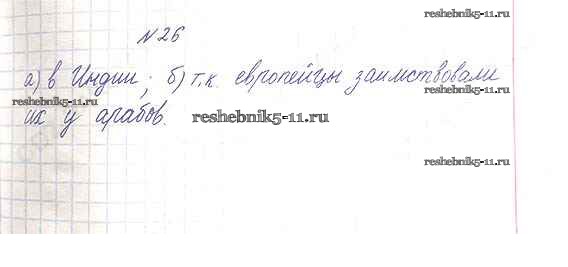 №26
reshebnik5-11.ru
а) в Индии; б) т.к. европейцы заимствовали
reshebnik5-11.ru
reshebnik5-11.ru
их у арабов.
reshebnik5-11.ru
reshebnik5-11.ru